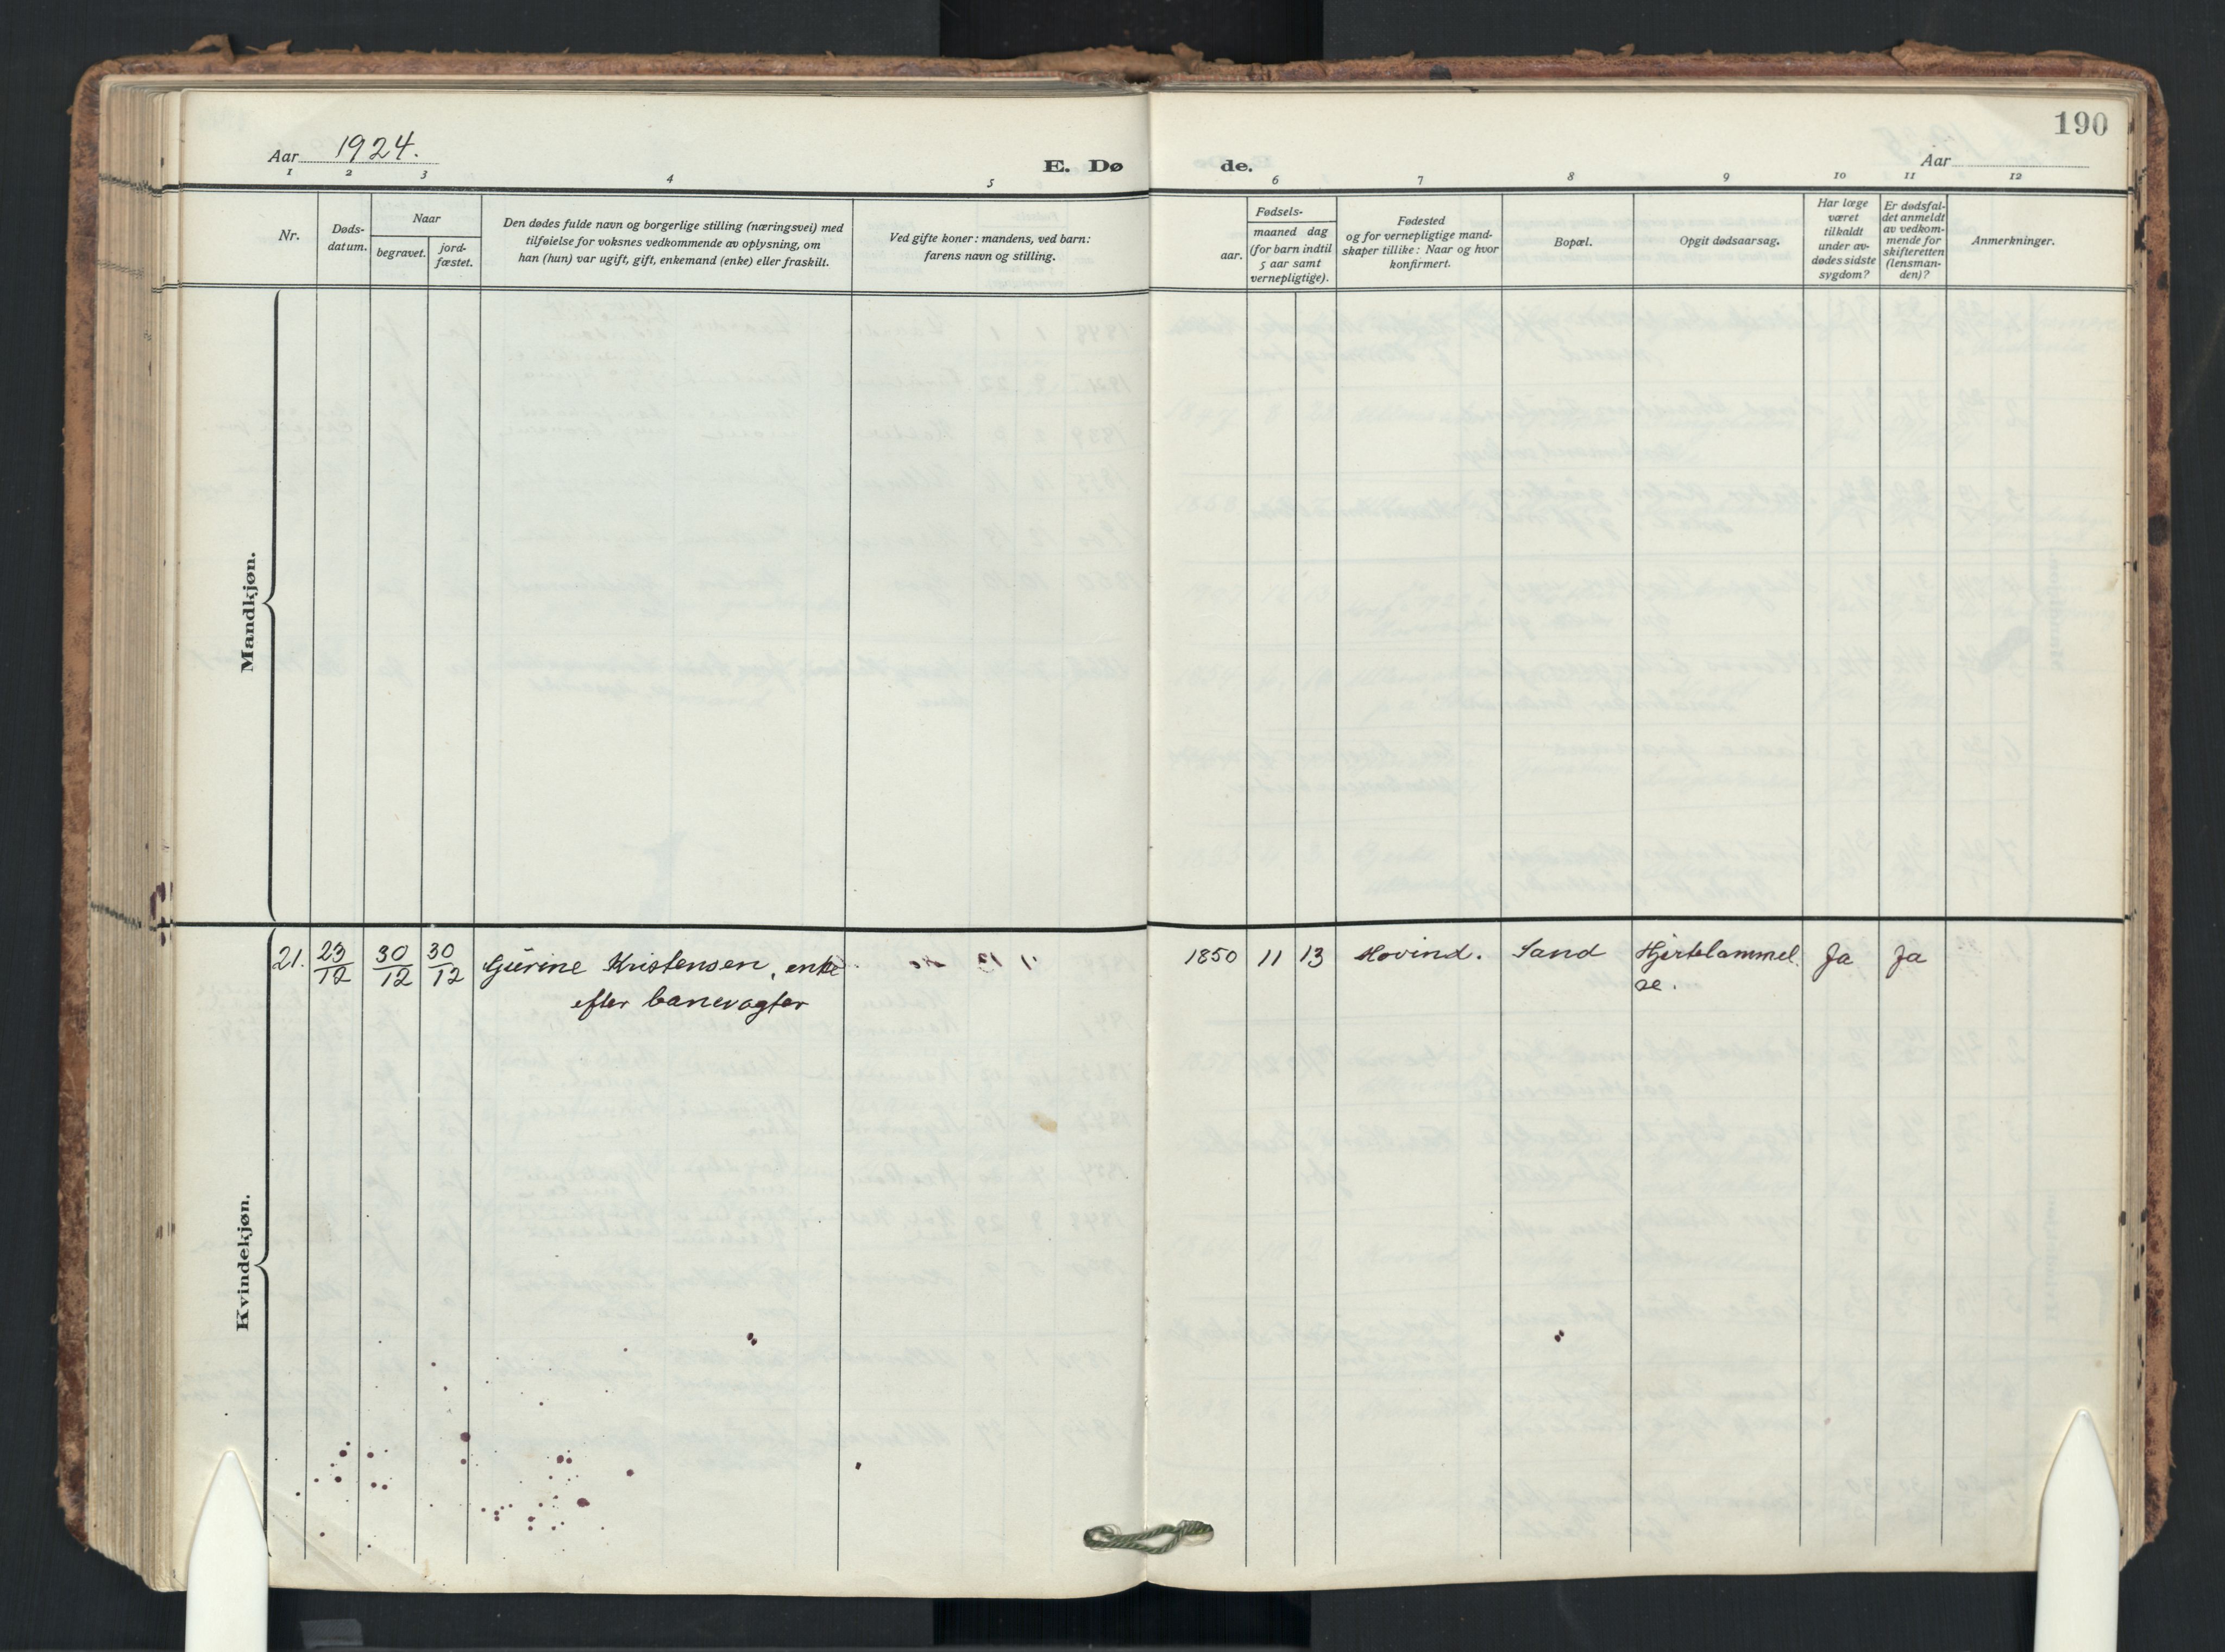 190
Aar 1924.
E. Dø
de.
Aar
1 2 3 4 5 6 7 8 9 10 11 12
Nr.
Døds-
datum.
Naar
begravet.
jord-
fæstet.
Den dødes fulde navn og borgerlige stilling (næringsvei) med
tilføielse for voksnes vedkommende av oplysning, om
han (hun) var ugift, gift, enkemand (enke) eller fraskilt.
Ved gifte koner: mandens, ved barn:
farens navn og stilling.
Fødsels-
aar.
maaned dag
(for barn indtil
5 aar samt
vernepligtige).
Fødested
og for vernepligtige mand-
skaper tillike: Naar og hvor
konfirmert.
Bopæl.
Opgit dødsaarsag.
Har læge
været
tilkaldt
under av-
dødes sidste
sygdom?
Er dødsfal-
det anmeldt
av vedkom-
mende for
skifteretten
(lensman-
den)?
Anmerkninger.
Mandkjøn.
Kvindekjøn.
21. 23/12 30/12 30/12 Gurine Kristensen, enke 1850 11 13 Hovind. Sand Hjertelammel Ja Ja
efter banevogter se.